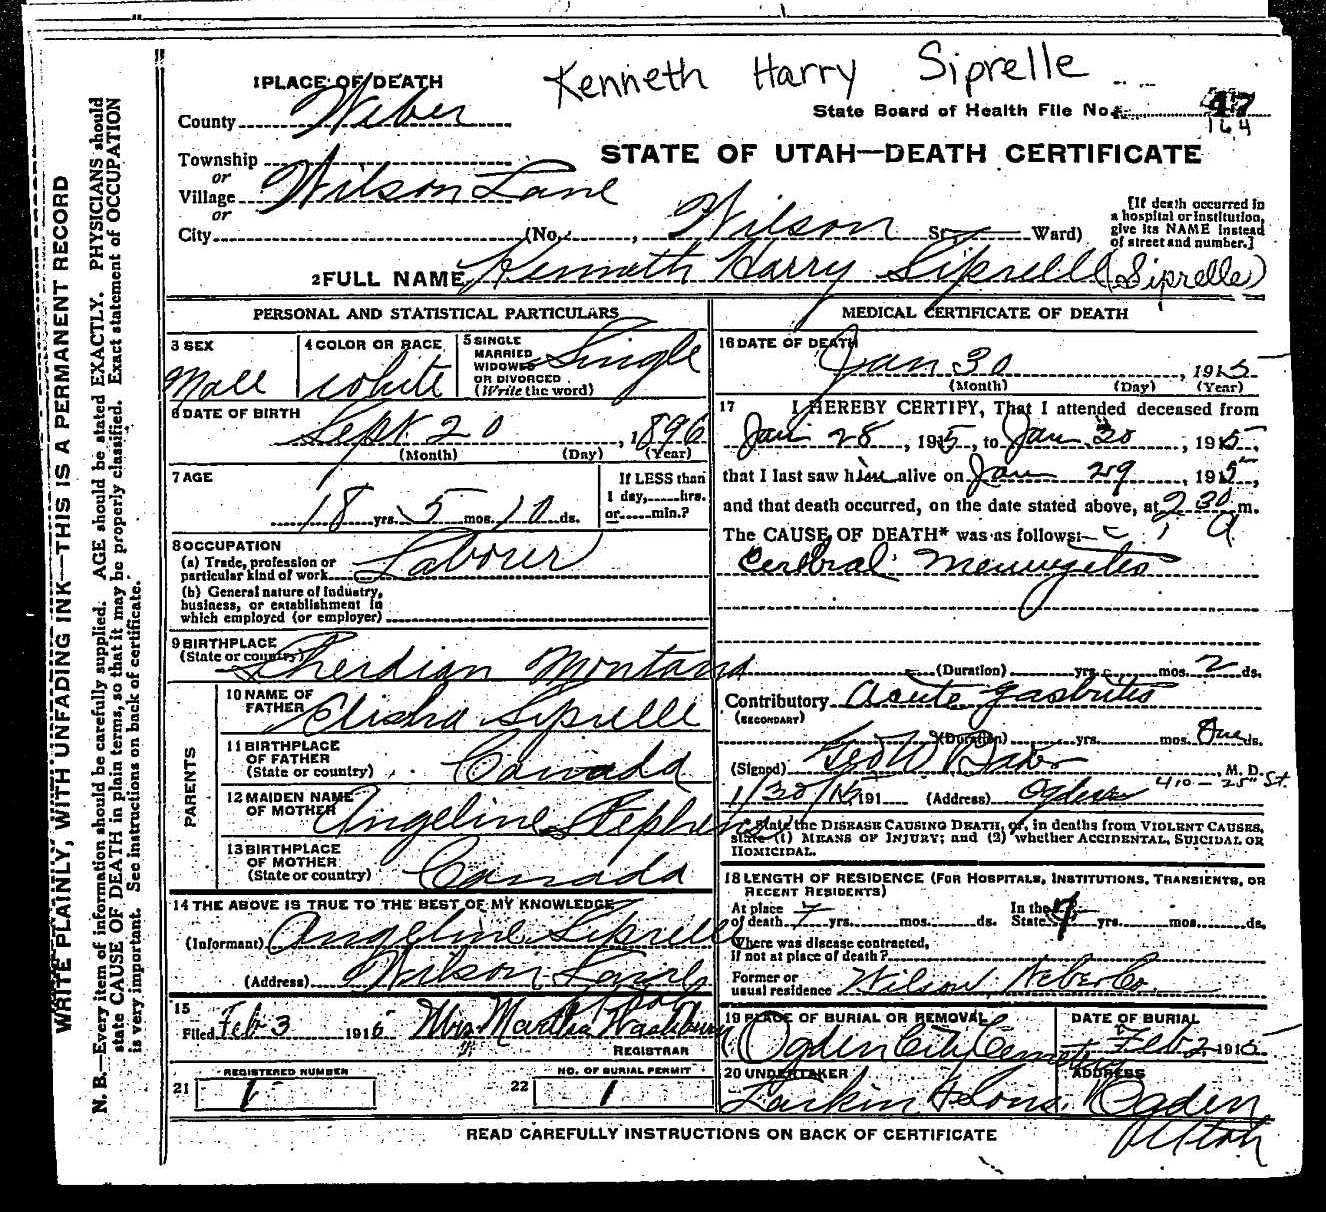 Kenneth Harry Siprelle
1 PLACE OF DEATH
State Board of Health File No. 47
164
County Weber
STATE OF UTAH—DEATH CERTIFICATE
Township
or
Village Wilson Lane
or
City (No. , Wilson St. Ward)
[If death occurred in
a hospital or institution,
give its NAME instead
of street and number.]
2 FULL NAME Kenneth Harry Siprelle (Siprelle)
PERSONAL AND STATISTICAL PARTICULARS
3 SEX
Male
4 COLOR OR RACE
white
5 SINGLE
MARRIED
WIDOWED
OR DIVORCED
(Write the word)
Single
6 DATE OF BIRTH
Sept 20, 1896
(Month) (Day) (Year)
7 AGE
18 yrs. 5 mos. 10 ds.
If LESS than
1 day, hrs.
or min.?
8 OCCUPATION
(a) Trade, profession or
particular kind of work Laborer
(b) General nature of industry,
business, or establishment in
which employed (or employer)
9 BIRTHPLACE
(State or country) Sherdian Montana
PARENTS
10 NAME OF
FATHER Elisha Siprelle
11 BIRTHPLACE
OF FATHER
(State or country) Canada
12 MAIDEN NAME
OF MOTHER Angeline Stephens
13 BIRTHPLACE
OF MOTHER
(State or country) Canada
14 THE ABOVE IS TRUE TO THE BEST OF MY KNOWLEDGE
(Informant) Angeline Siprelle
(Address) Wilson Lane
15
Filed Feb 3 1915 Mrs. Martha Washburn
REGISTRAR
21 REGISTERED NUMBER 1
22 NO. OF BURIAL PERMIT 1
MEDICAL CERTIFICATE OF DEATH
16 DATE OF DEATH
Jan 30, 1915
(Month) (Day) (Year)
17 I HEREBY CERTIFY, That I attended deceased from
Jan 28, 1915, to Jan 30, 1915,
that I last saw him alive on Jan 29, 1915,
and that death occurred, on the date stated above, at 2 30 a m.
The CAUSE OF DEATH* was as follows:
Cerebral Meningitis
(Duration) yrs. mos. 2 ds.
Contributory Acute gastritis
(SECONDARY)
(Duration) yrs. mos. One ds.
(Signed) Geo W Baker M. D.
1/30/15 191 (Address) Ogden 410 - 25" St.
* State the DISEASE CAUSING DEATH, or, in deaths from VIOLENT CAUSES,
state (1) MEANS OF INJURY; and (2) whether ACCIDENTAL, SUICIDAL OR
HOMICIDAL.
18 LENGTH OF RESIDENCE (FOR HOSPITALS, INSTITUTIONS, TRANSIENTS, OR
RECENT RESIDENTS)
At place
of death 7 yrs. mos. ds.
In the
State yrs. mos. ds.
Where was disease contracted,
if not at place of death?
Former or
usual residence Wilson, Weber Co.
19 PLACE OF BURIAL OR REMOVAL
Ogden City Cemetery
DATE OF BURIAL
Feb 2 1915
20 UNDERTAKER
Larkin & Sons.
ADDRESS
Ogden
Utah
READ CAREFULLY INSTRUCTIONS ON BACK OF CERTIFICATE
WRITE PLAINLY, WITH UNFADING INK—THIS IS A PERMANENT RECORD
N. B.—Every item of information should be carefully supplied. AGE should be stated EXACTLY. PHYSICIANS should
state CAUSE OF DEATH in plain terms, so that it may be properly classified. Exact statement of OCCUPATION
is very important. See instructions on back of certificate.